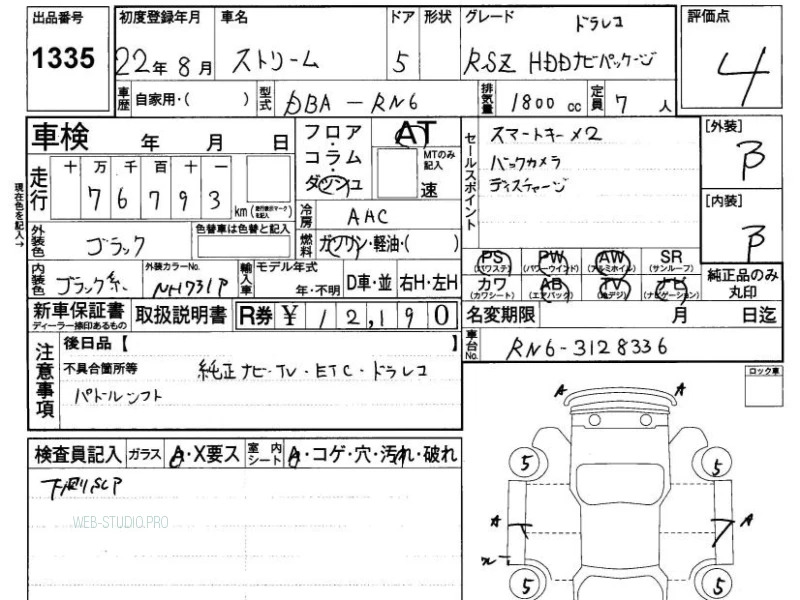 出品番号 初度登録年月 車名 ドア 形状 グレード ドラレコ 評価点
1335 22年 8月 ストリーム 5 RSZ HDDナビパッケージ 4
車歴 自家用・( ) 型式 DBA-RN6 排気量 1800 cc 定員 7 人
車検 年 月 日
フロア・コラム・ダッシュ AT MTのみ記入 速
セールスポイント スマートキー×2
バックカメラ
ディスチャージ
[外装] B
[内装] B
現在色を記入→
走行 十 万 千 百 十 一
7 6 7 9 3 km
冷房 AAC
燃料 ガソリン・軽油・( )
外装色 ブラック 色替車は色替と記入
内装色 ブラック系 外装カラーNo. NH731P 輸入車 モデル年式 年・不明 D車・並 右H・左H
PS (パワステ) PW (パワーウインド) AW (アルミホイル) SR (サンルーフ)
カワ (カワシート) AB (エアバック) TV (地デジ) ナビ (ナビゲーション)
純正品のみ丸印
新車保証書 ディーラー捺印あるもの 取扱説明書 R券 ¥ 12,190
名変期限 月 日迄
車台No. RN6-3128336
注意事項 後日品【 】
不具合箇所等 純正ナビ・TV・ETC・ドラレコ
パドルシフト
ロック車
検査員記入 ガラス A・X要ス 室内シート A・コゲ・穴・汚れ・破れ
WEB-STUDIO.PRO
A A
5 5
A A
5 5